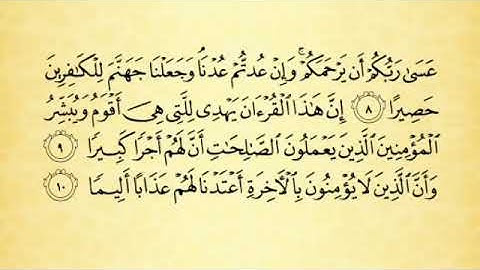 عَسَىٰ رَبُّكُمْ أَن يَرْحَمَكُمْ ۚ وَإِنْ عُدتُّمْ عُدْنَا ۘ وَجَعَلْنَا جَهَنَّمَ لِلْكَٰفِرِينَ
حَصِيرًا ٨ إِنَّ هَٰذَا ٱلْقُرْءَانَ يَهْدِى لِلَّتِى هِىَ أَقْوَمُ وَيُبَشِّرُ
ٱلْمُؤْمِنِينَ ٱلَّذِينَ يَعْمَلُونَ ٱلصَّٰلِحَٰتِ أَنَّ لَهُمْ أَجْرًا كَبِيرًا ٩
وَأَنَّ ٱلَّذِينَ لَا يُؤْمِنُونَ بِٱلْءَاخِرَةِ أَعْتَدْنَا لَهُمْ عَذَابًا أَلِيمًا ١٠